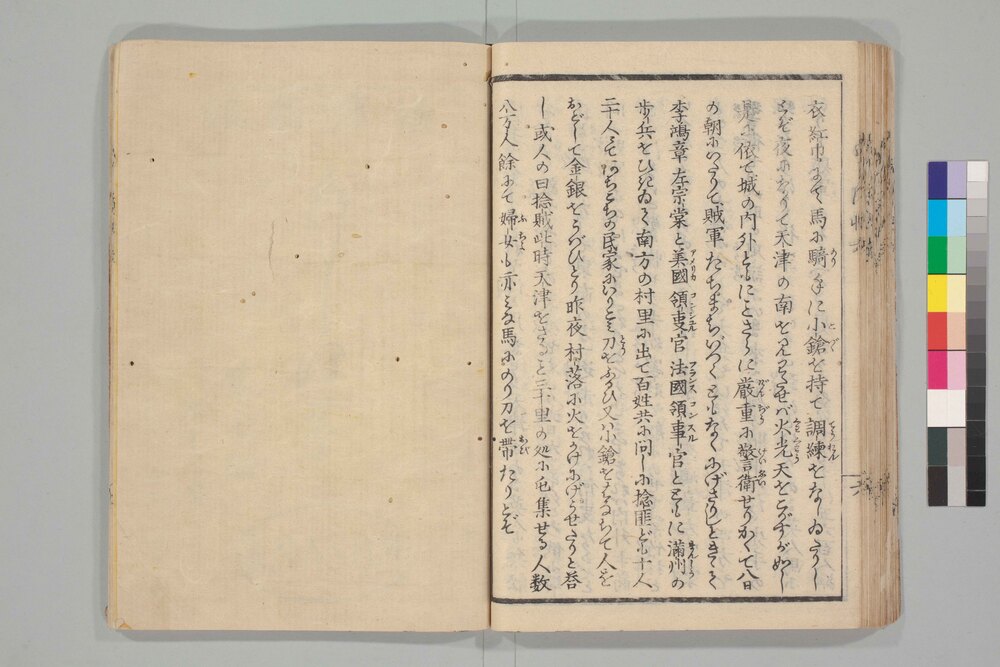 衣に紅巾にて馬に騎り手に小鎗を持て調練をなしゐたりし
とぞ夜に至りて天津の南を見わたせバ火光天をこがすが如し
是に依て城の内外ともにことさらに厳重に警衛せりかくて八日
の朝にいたりて賊軍たちまちいづくともなくにげさりしときくそ
李鴻章左宗棠と美國領事官法國領事官とともに満州の
歩兵をひきゐて南方の村里に出て百姓共に問しに捻匪ども十人
二十人にてあちこちの民家にいりこミ刀をふるひ又ハ小鎗をはなちて人を
おどして金銀をうバひとり昨夜村落に火をかけにげうせたりと答
し或人の曰捻賊此時天津をさること三十里の処に屯集せる人数
八万人餘にて婦女も亦ミな馬にのり刀を帯たりとぞ